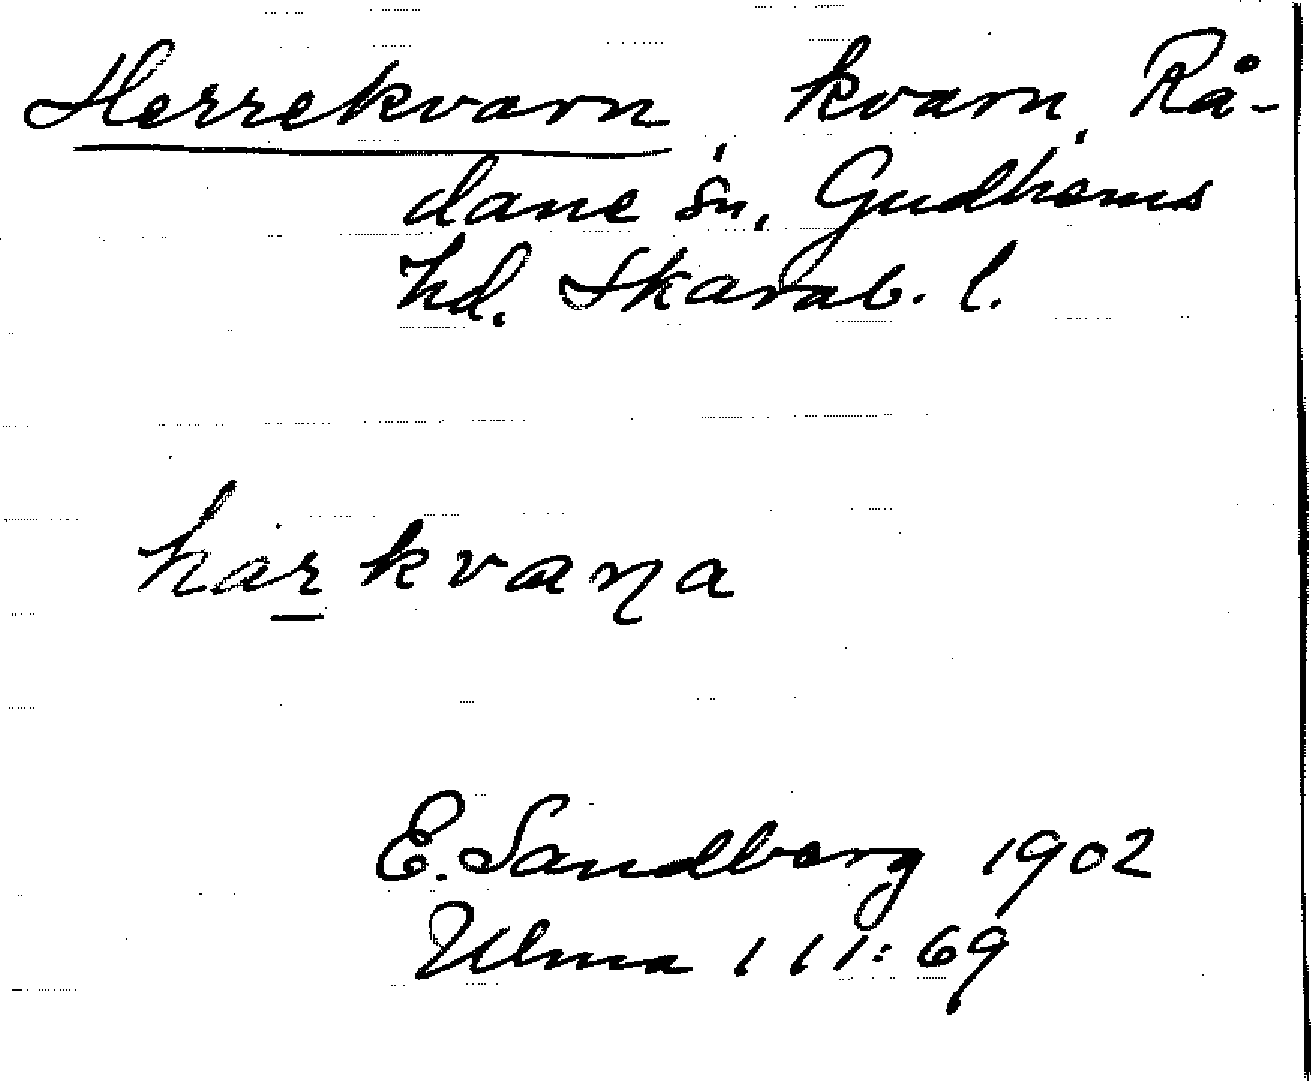 Herrekvarn, kvarn, Rå-
dane sn, Gudhems
hd. Skarab. l.
har̲kvæɳa
E. Sandberg 1902
Ulma 111:69